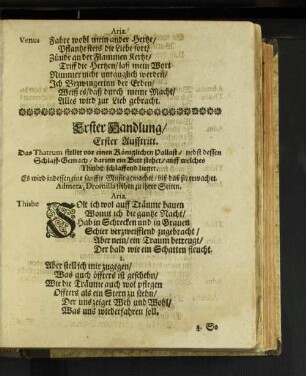 Aria.
Venus Fahre wohl mein ander Hertze/
Pflantze stets die Liebe fort/
Zünde an der Flammen Kertze/
Triff die Hertzen/ laß mein Wort
Nimmer nicht untauglich werden/
Ich Bezwingerinn der Erden/
Weiß es/ daß durch meine Macht/
Alles wird zur Lieb gebracht.
Erster Handlung/
Erster Aufftritt.
Das Theatrum stellet vor einen Königlichen Pallast/ nebst dessen
Schlaff-Gemach/ darinn ein Bett stehet/ auff welches
Thisbe schlaffend lieget.
Es wird indessen eine sanffte Music gemachet/ biß daß sie erwachet.
Admera, Dromilla sitzen zu ihrer Seiten.
Aria.
Thisbe Solt ich wol auff Träume bauen
Womit ich die gantze Nacht/
Hab in Schrecken und in Grauen
Schier verzweifflend zugebracht/
Aber nein/ ein Traum betreugt/
Der bald wie ein Schatten fleucht.
2.
Aber stell ich mir zugegen/
Was auch öffters ist geschehn/
Wie die Träume auch wol pflegen
Offters als ein Stern zu stehn/
Der uns zeiget Weh und Wohl/
Was uns wiederfahren soll.
3. So